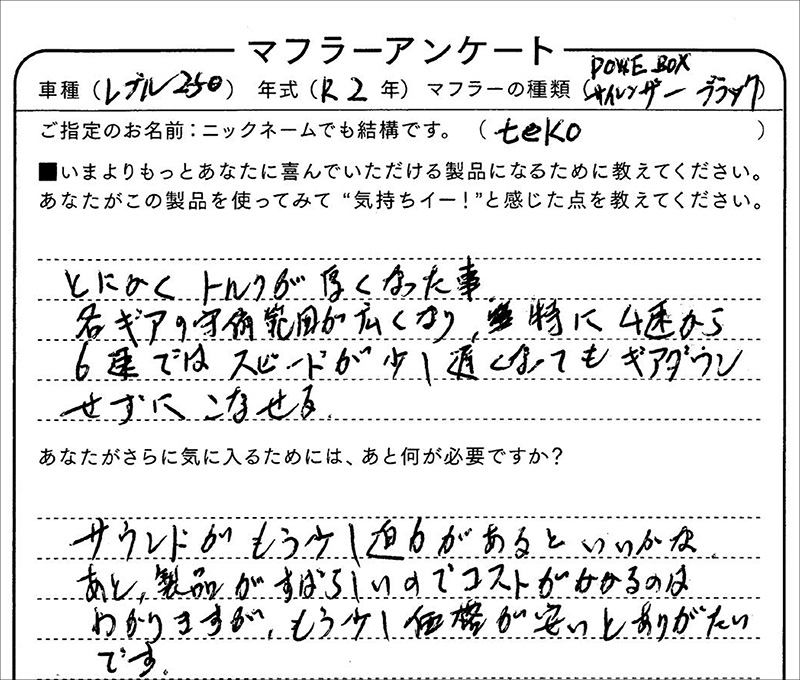 マフラーアンケート
POWE BOX
車種（レブル250） 年式（R2年） マフラーの種類（サイレンサー ブラック）
ご指定のお名前：ニックネームでも結構です。（teko）
■いまよりもっとあなたに喜んでいただける製品になるために教えてください。
あなたがこの製品を使ってみて “気持ちイー！”と感じた点を教えてください。
とにかく トルクが 厚くなった事
各ギアの守備範囲が広くなり、特に4速から
6速では スピードが少し遅くなってもギアダウン
せずに こなせる.
あなたがさらに気に入るためには、あと何が必要ですか？
サウンドが もう少し迫力があると いいかな.
あと, 製品がすばらしいのでコストがかかるのは
わかりますが, もう少し価格が安いとありがたい
です.